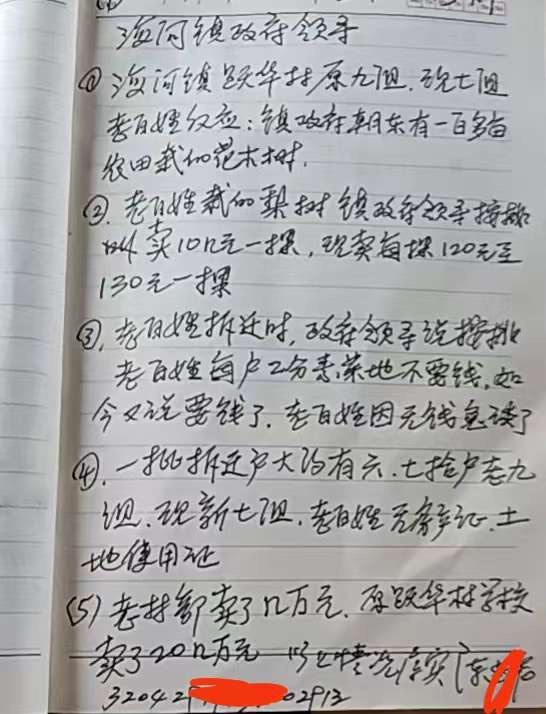 海河镇政府领导
① 海河镇跃华村原九组.现七组
老百姓反应:镇政府朝东有一百多亩
农田栽的花木树.
②. 老百姓栽的梨树镇政府领导按排
叫卖10几元一棵,现卖每棵120元至
130元一棵
③, 老百姓拆迁时,政府领导说按排
老百姓每户2分青菜地不要钱,如
今又说要钱了.老百姓因无钱急
④. 一批拆迁户大约有六.七拾户老九
组.现新七组.老百姓无房产证.土
地使用证
(5) 老村部卖了几万元.原跃华村学校
卖了20几万元 以上情况属实
3204 02913